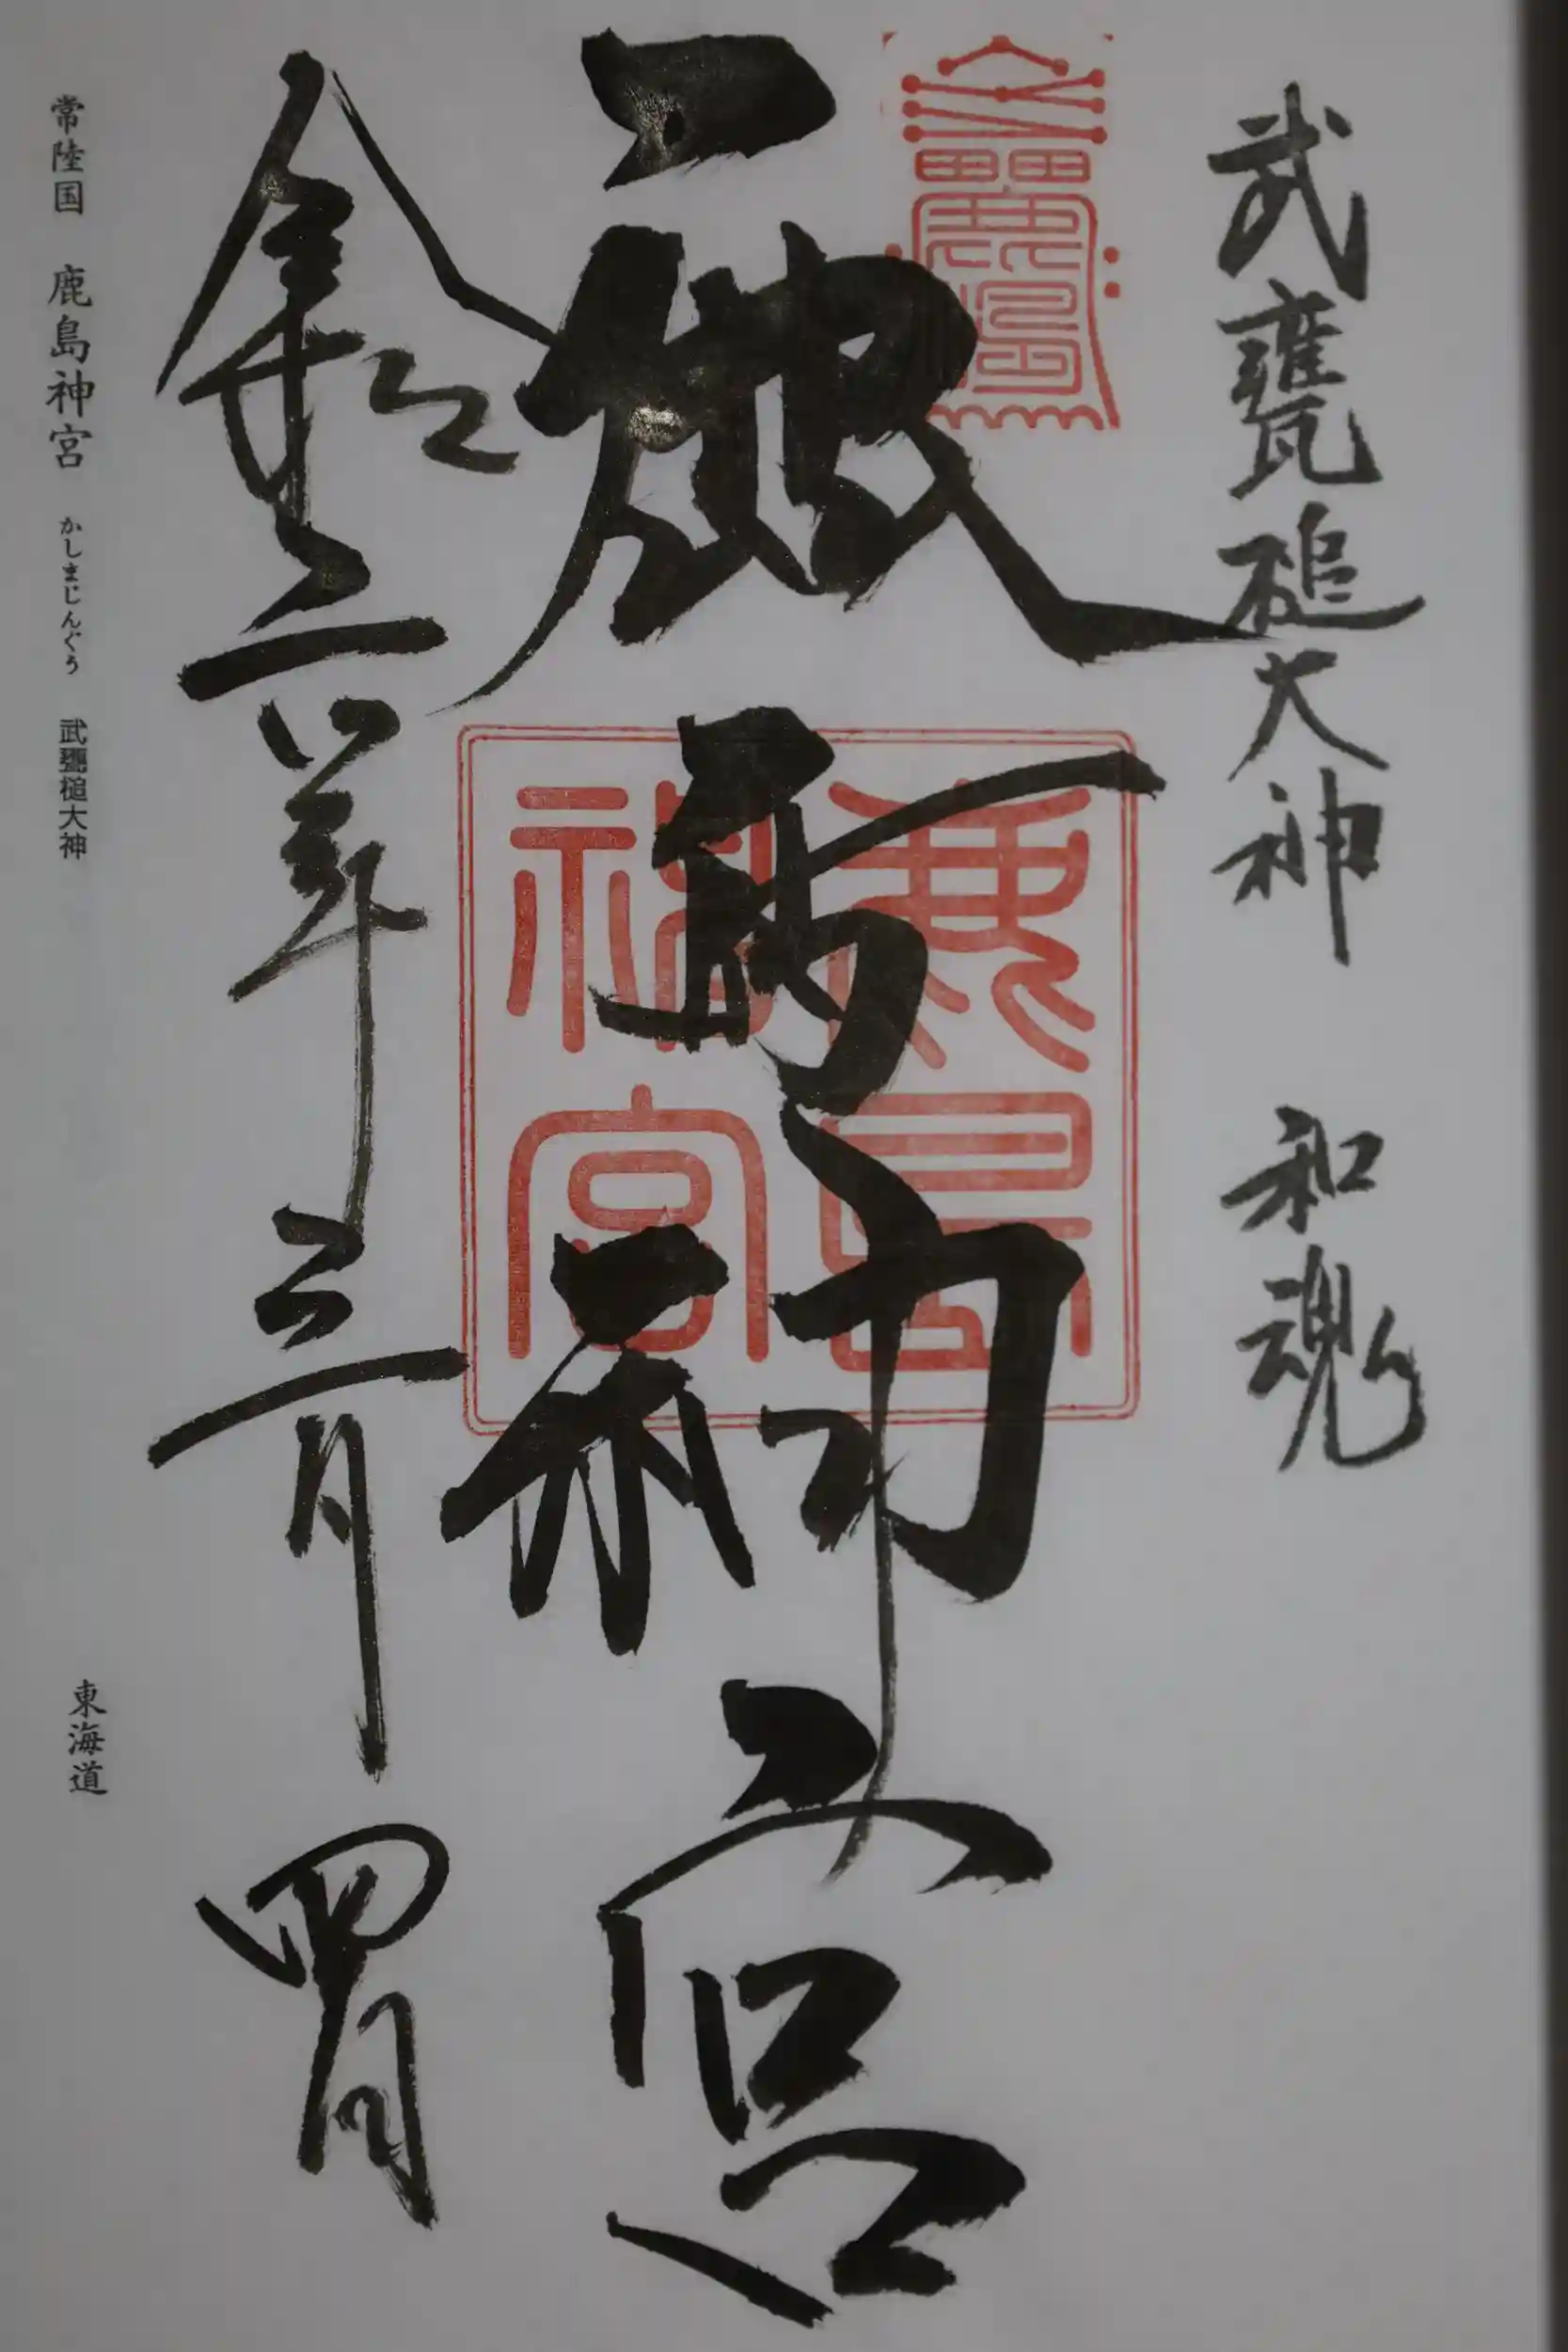 武甕槌大神 和魂
鹿島神宮
鹿島神宮
令和六年三月四日
常陸国 鹿島神宮 かしまじんぐう 武甕槌大神 東海道